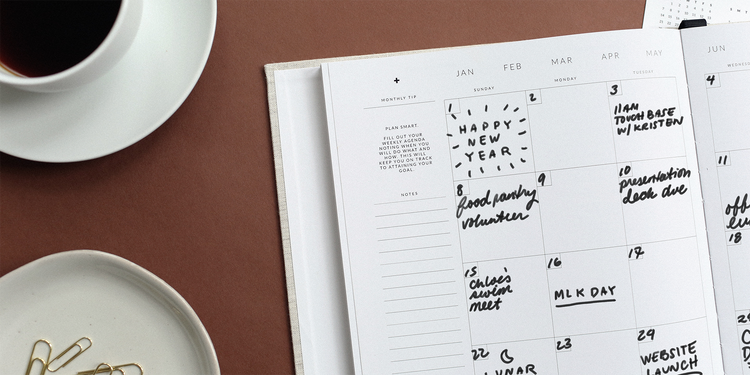 JAN FEB MAR APR MAY JUN
MONTHLY TIP
PLAN SMART.
FILL OUT YOUR
WEEKLY AGENDA
NOTING WHEN YOU
WILL DO WHAT AND
HOW. THIS WILL
KEEP YOU ON TRACK
TO ATTAINING YOUR
GOAL.
NOTES
SUNDAY MONDAY TUESDAY
1
HAPPY
NEW
YEAR
2
3
11AM
TOUCH BASE
W/ KRISTEN
4
8
food pantry
volunteer
9
10
presentation
deck due
11
15
Chloe's
swim
meet
16
MLK DAY
17
18
22
LUNAR
23
24
WEBSITE
LAUNCH